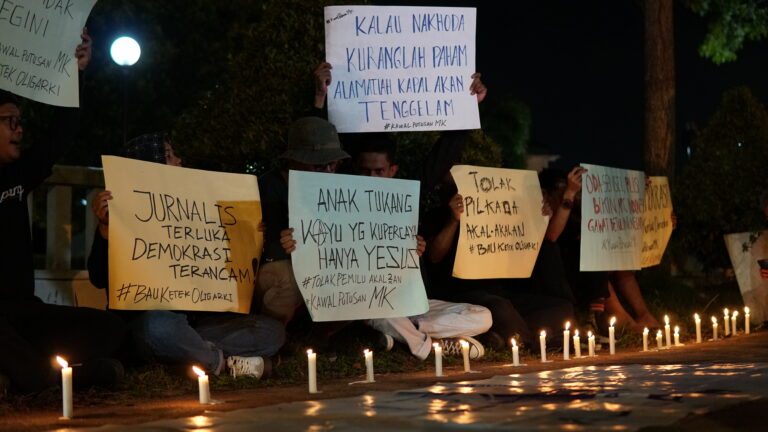 EGINI
KAWAL PUTUSAN
MK
#BAUKETEK OLIGARKI
KALAU NAKHODA
KURANGLAH PAHAM
ALAMATLAH KAPAL AKAN
TENGGELAM
#KAWAL PUTUSAN MK
JURNALIS
TERLUKA
DEMOKRASI
TERANCAM!
#BAUKETEKOLIGARKI
ANAK TUKANG
KAYU YG KUPERCAYA
HANYA YESUS
#TOLAKPEMILU AKAL2AN
#KAWAL PUTUSAN MK
TOLAK
PILKADA
AKAL-AKALAN
#BAUKETEK OLIGARKI